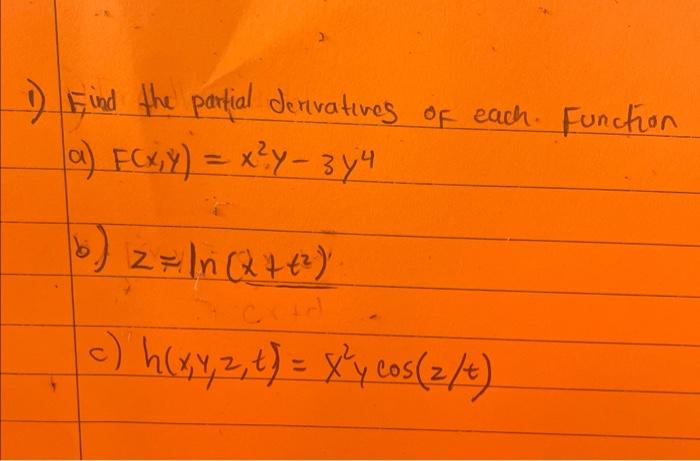 1) Find the partial derivatives of each. Function
a) F(x,y) = x²y - 3y⁴
b) z = ln(x + t²)
c) h(x,y,z,t) = x²y cos(z/t)